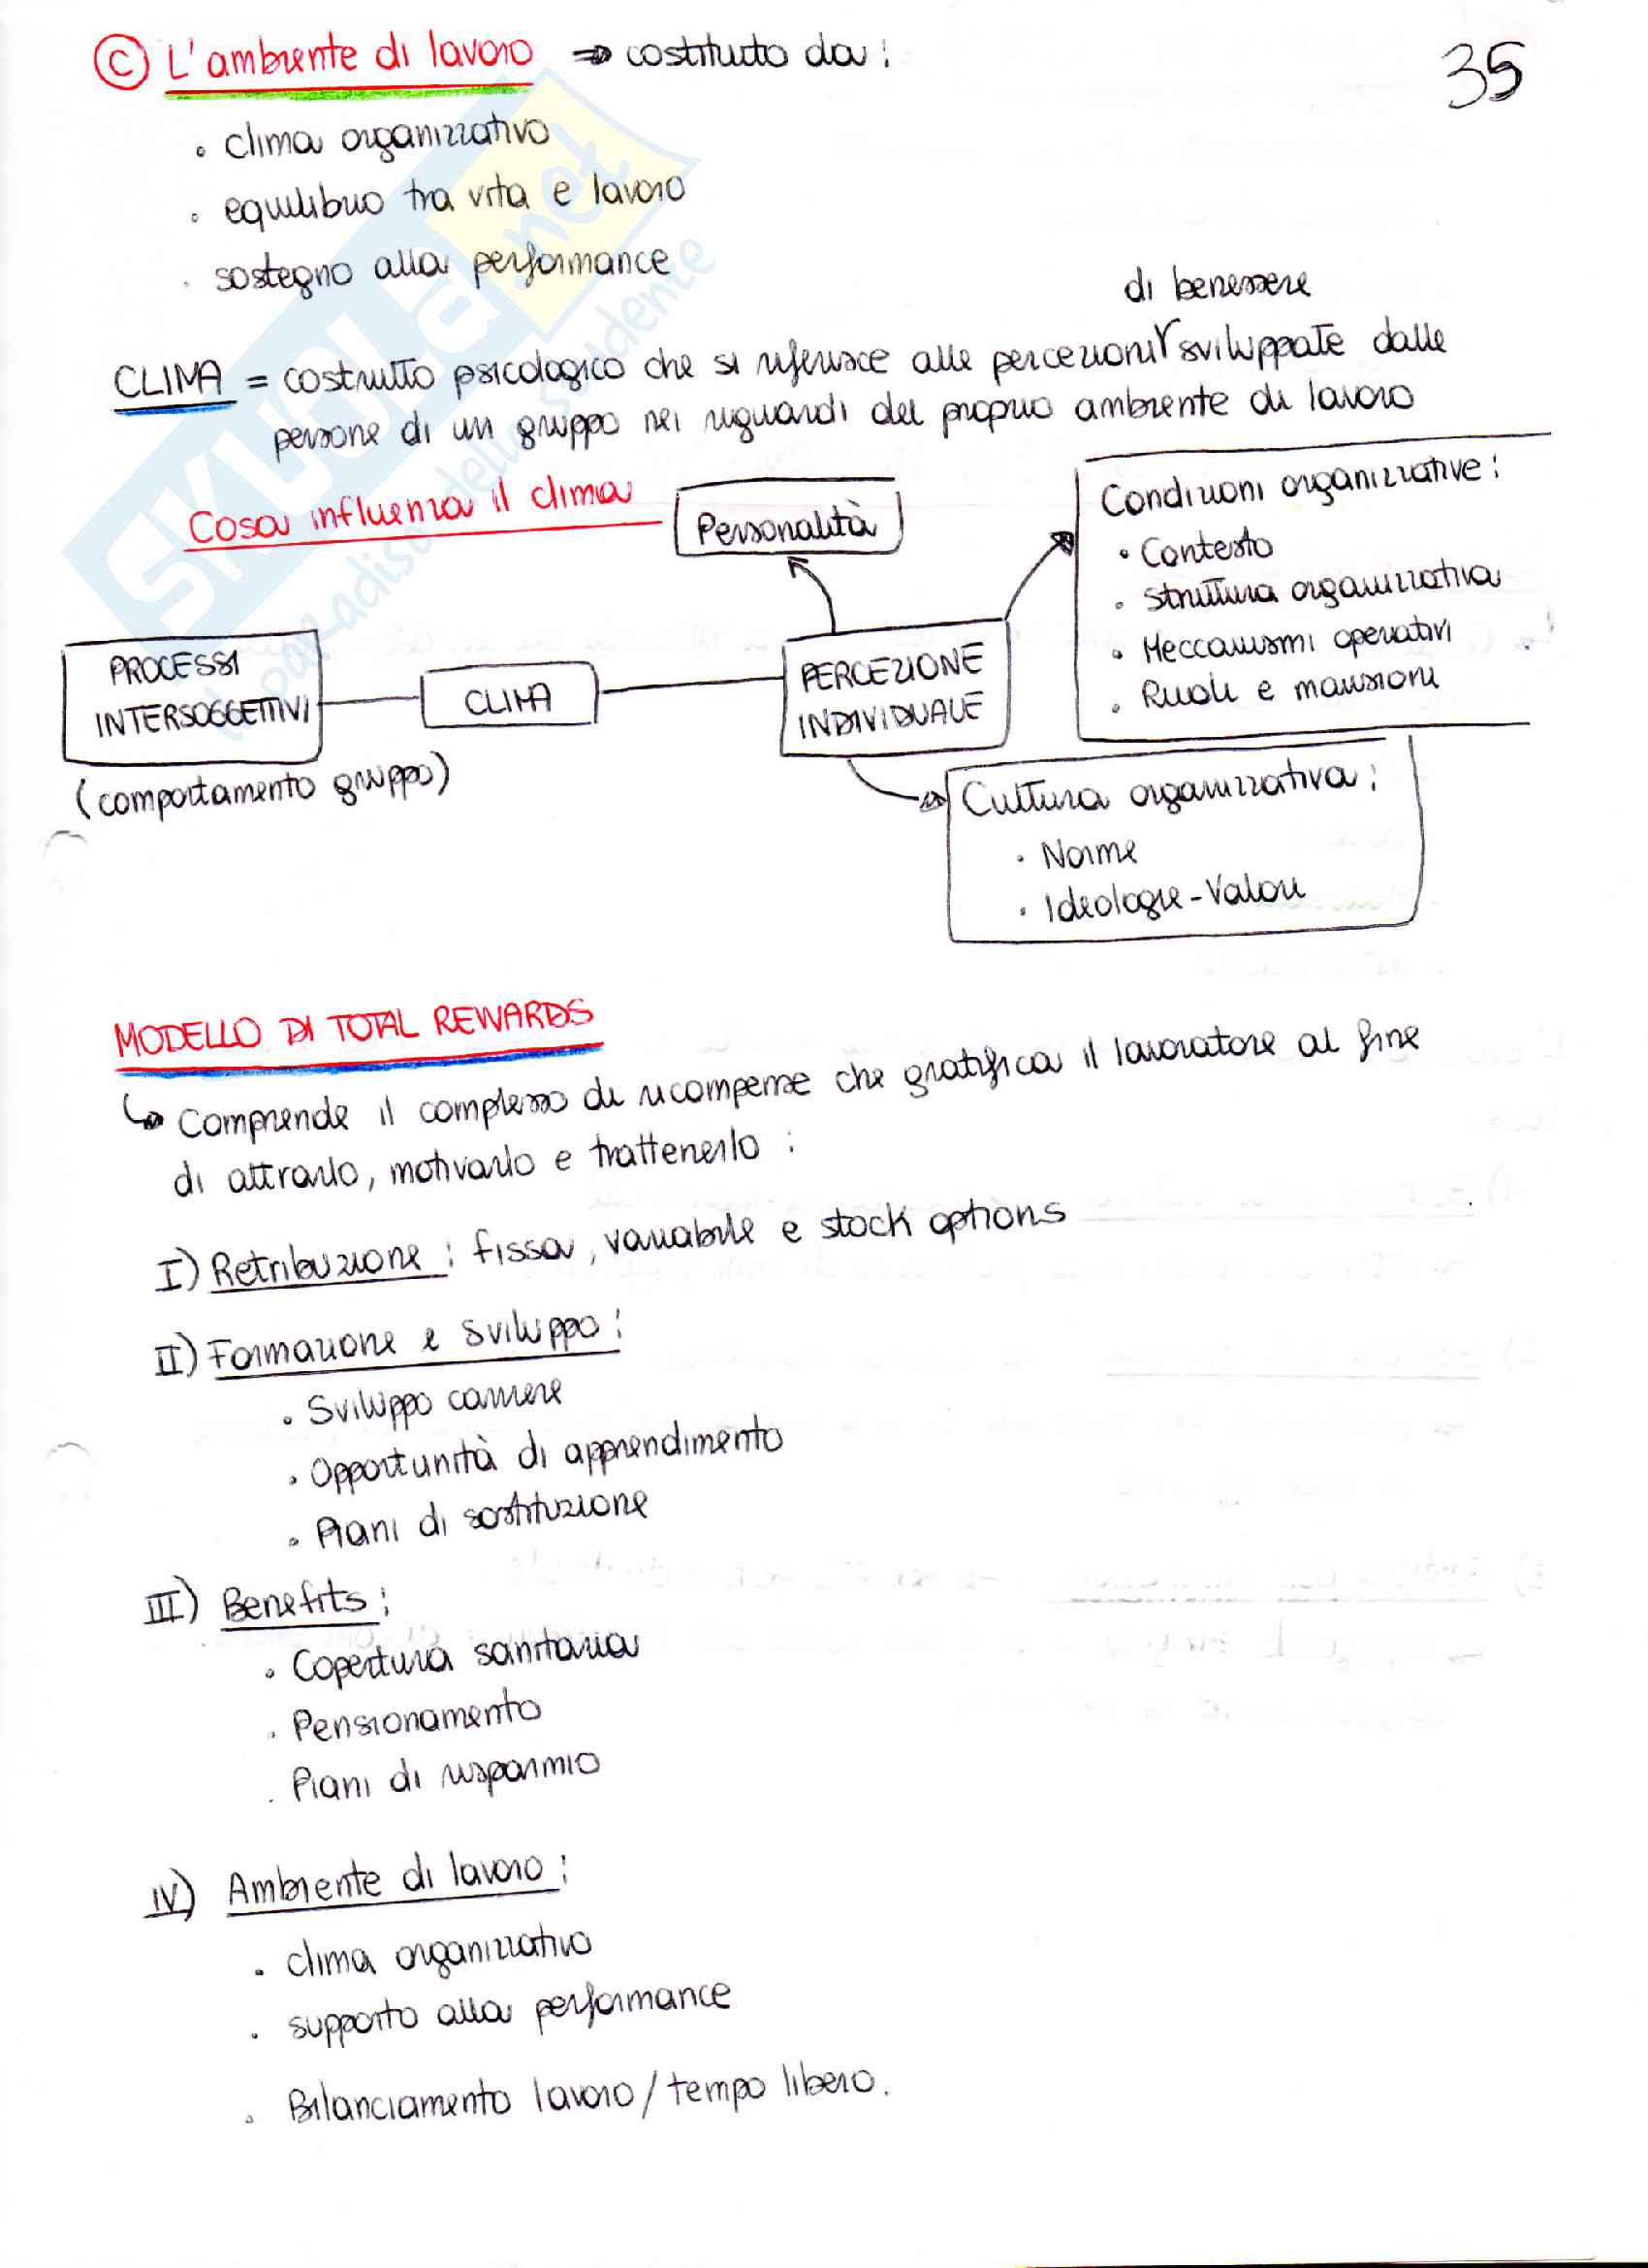 35
Ⓒ L'ambiente di lavoro ⇒ costituito da:
• clima organizzativo
• equilibrio tra vita e lavoro
• sostegno alla performance
di benessere
CLIMA = costrutto psicologico che si riferisce alle percezioni sviluppate dalle
persone di un gruppo nei riguardi del proprio ambiente di lavoro
Cosa influenza il clima
Personalità
Condizioni organizzative:
• Contesto
• Struttura organizzativa
• Meccanismi operativi
• Ruoli e mansioni
PROCESSI
INTERSOGGETTIVI
(comportamento gruppo)
CLIMA
PERCEZIONE
INDIVIDUALE
Cultura organizzativa:
• Norme
• Ideologie-Valori
MODELLO DI TOTAL REWARDS
↳ Comprende il complesso di ricompense che gratifica il lavoratore al fine
di attrarlo, motivarlo e trattenerlo:
I) Retribuzione: fissa, variabile e stock options
II) Formazione e sviluppo:
• Sviluppo carriere
• Opportunità di apprendimento
• Piani di sostituzione
III) Benefits:
• Copertura sanitaria
• Pensionamento
• Piani di risparmio
IV) Ambiente di lavoro:
• clima organizzativo
• supporto alla performance
• Bilanciamento lavoro/tempo libero.
SKUOLA.net
il paradiso dello studente